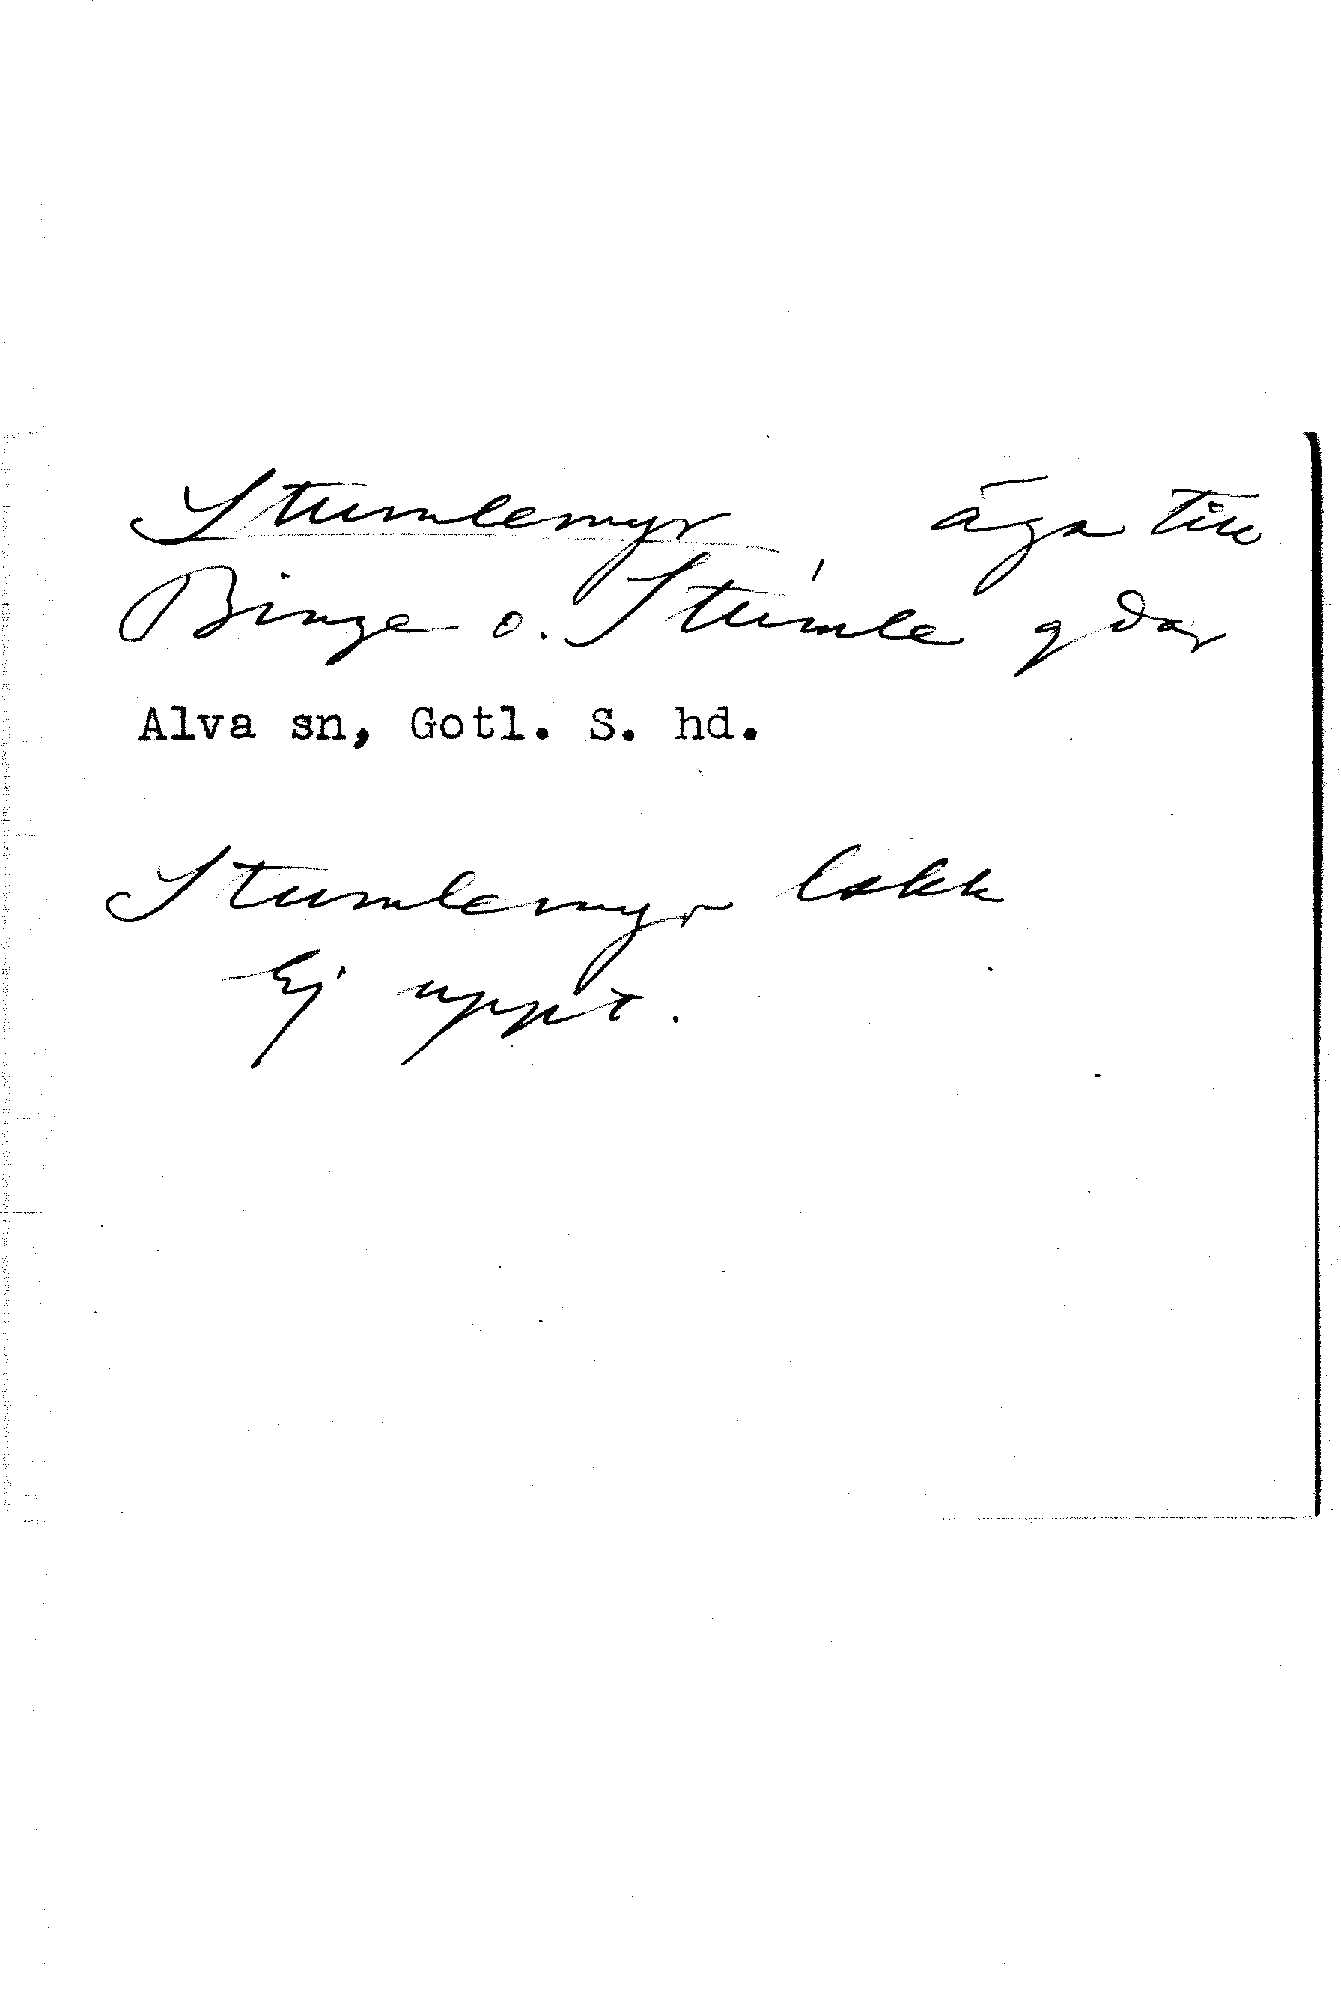 Stumlemyr äga till
Binge o. Stumle gdar
Alva sn, Gotl. S. hd.
Stumlemyr lekk
Ej uppt.